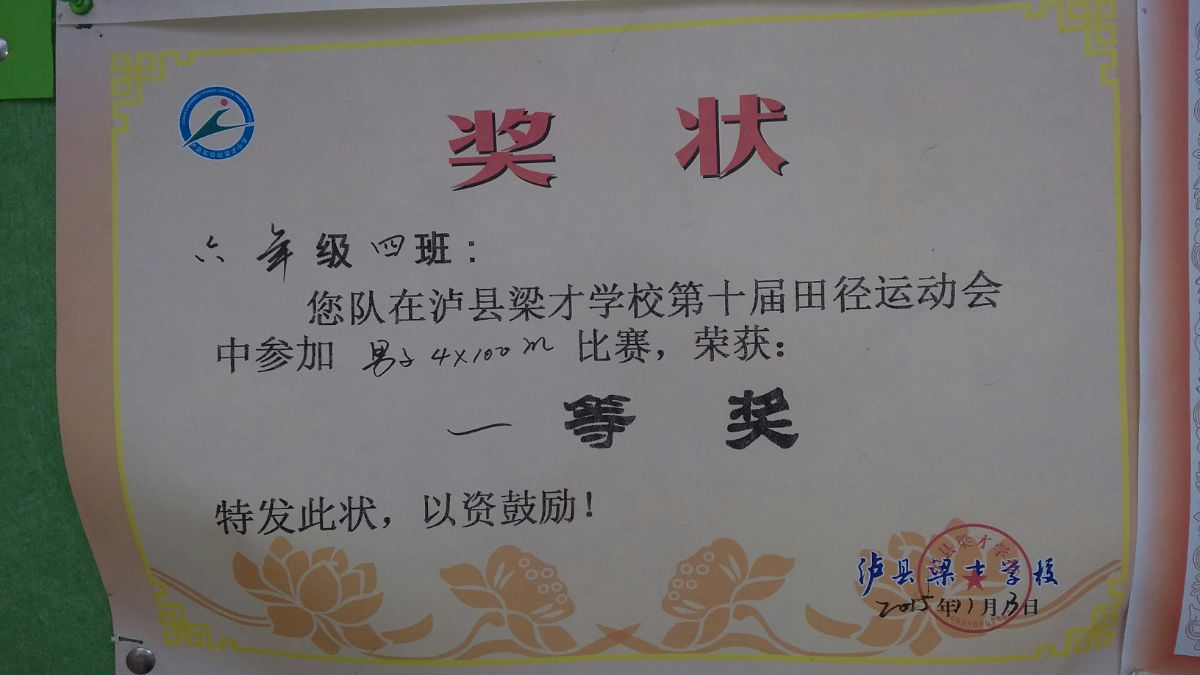 奖 状
六年级四班：
您队在泸县梁才学校第十届田径运动会
中参加 男子4×100m 比赛，荣获：
一等奖
特发此状，以资鼓励！
泸县梁才学校
2015年11月13日